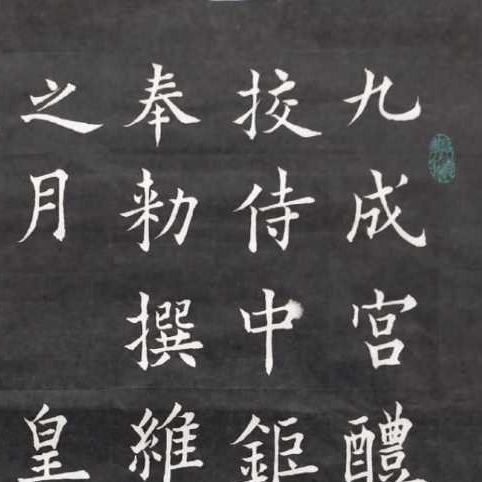 九成宮醴
挍侍中鉅
奉勅撰維
之月 皇